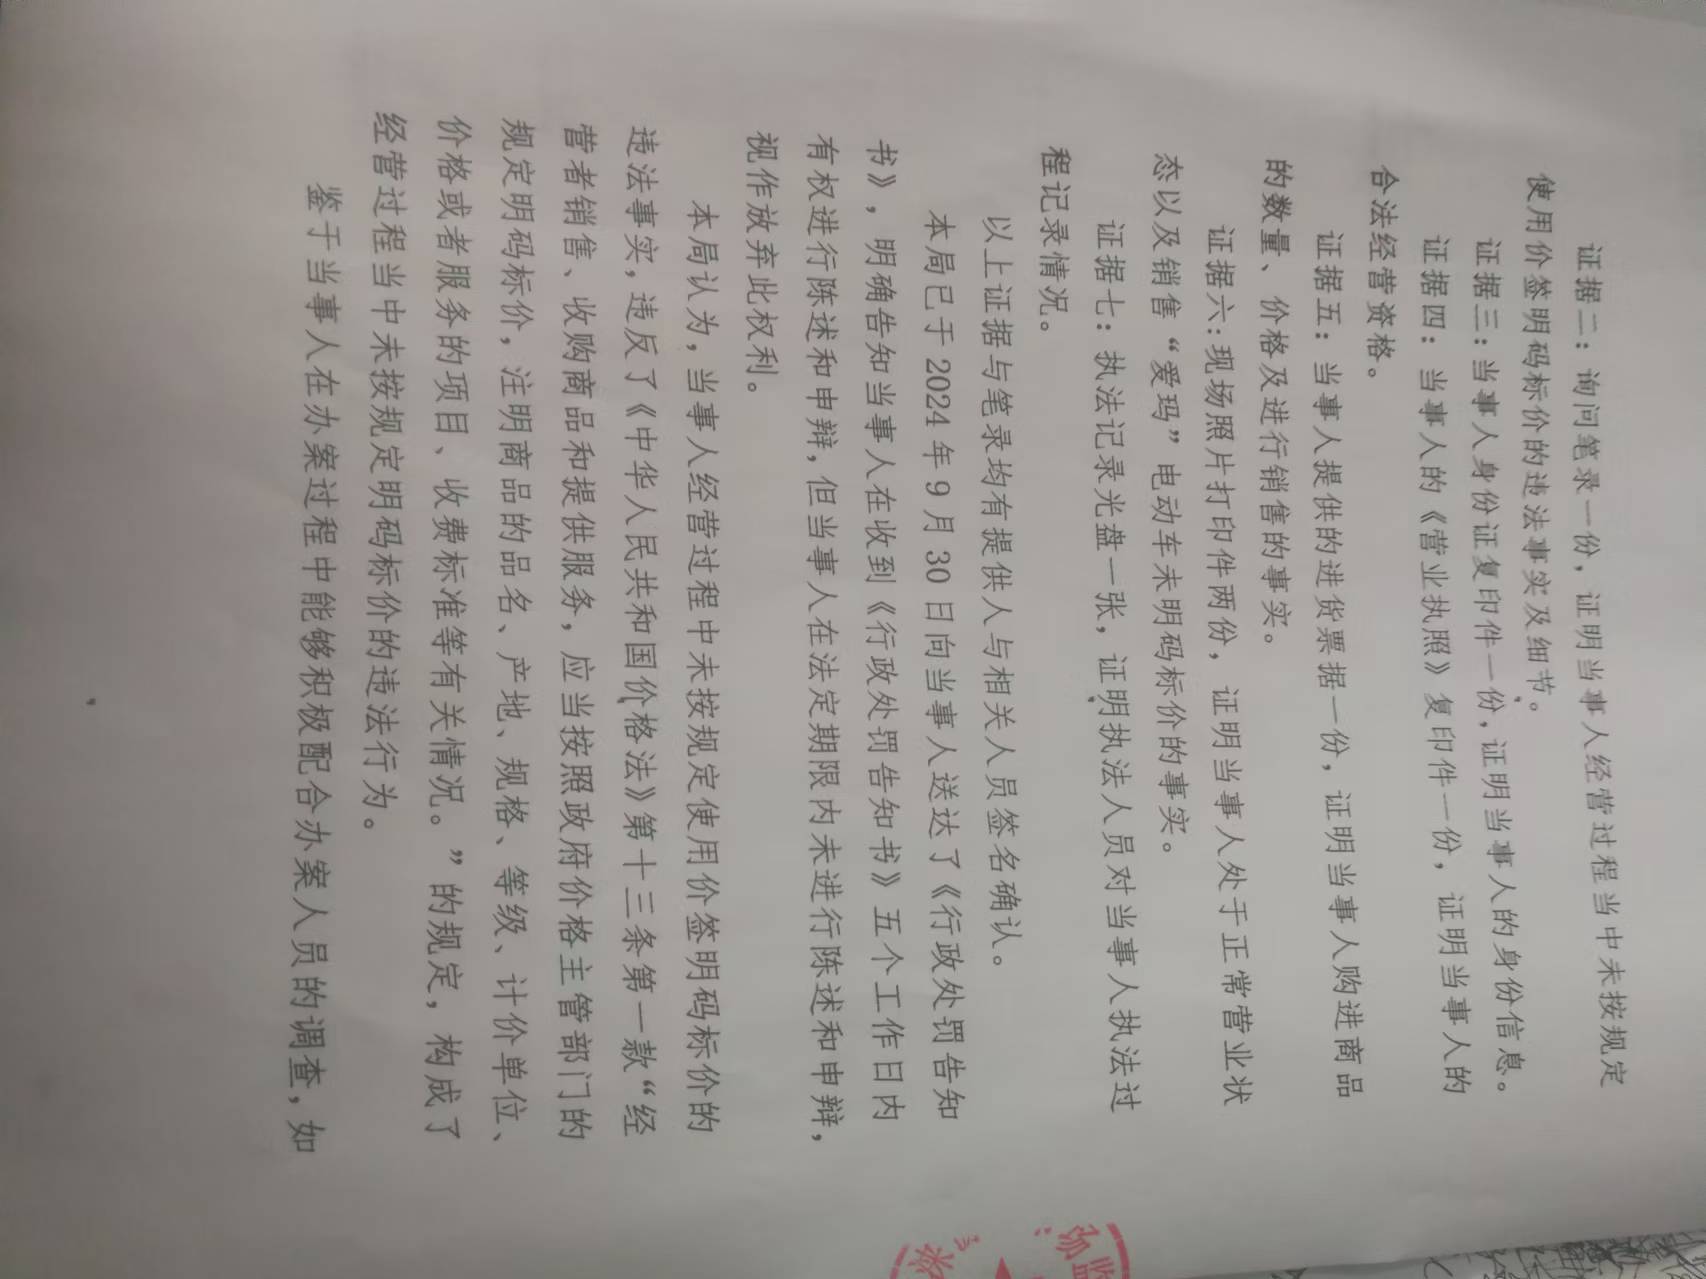 证据二：询问笔录一份，证明当事人经营过程当中未按规定
使用价签明码标价的违法事实及细节。
证据三：当事人身份证复印件一份，证明当事人的身份信息。
证据四：当事人的《营业执照》复印件一份，证明当事人的
合法经营资格。
证据五：当事人提供的进货票据一份，证明当事人购进商品
的数量、价格及进行销售的事实。
证据六：现场照片打印件两份，证明当事人处于正常营业状
态以及销售“爱玛”电动车未明码标价的事实。
证据七：执法记录光盘一张，证明执法人员对当事人执法过
程记录情况。
以上证据与笔录均有提供人与相关人员签名确认。
本局已于2024年9月30日向当事人送达了《行政处罚告知
书》，明确告知当事人在收到《行政处罚告知书》五个工作日内
有权进行陈述和申辩，但当事人在法定期限内未进行陈述和申辩，
视作放弃此权利。
本局认为，当事人经营过程中未按规定使用价签明码标价的
违法事实，违反了《中华人民共和国价格法》第十三条第一款“经
营者销售、收购商品和提供服务，应当按照政府价格主管部门的
规定明码标价，注明商品的品名、产地、规格、等级、计价单位、
价格或者服务的项目、收费标准等有关情况。”的规定，构成了
经营过程当中未按规定明码标价的违法行为。
鉴于当事人在办案过程中能够积极配合办案人员的调查，如
场监